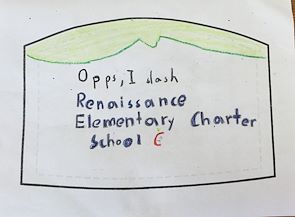 Opps, I dash
Renaissance
Elementary Charter
School C